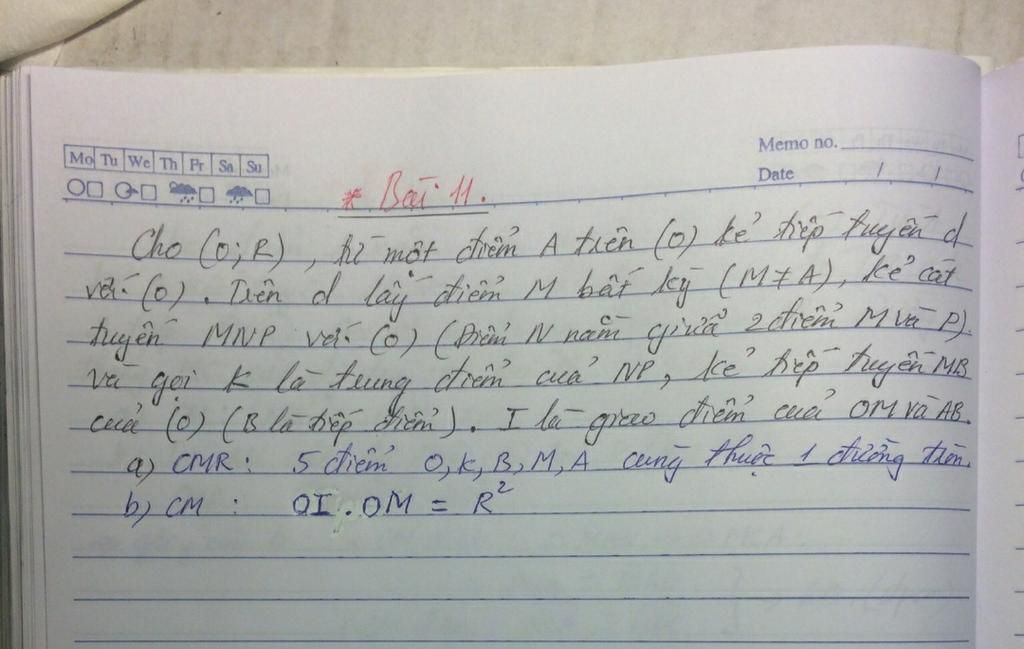 Memo no.
Mo Tu We Th Fr Sa Su
Date / /
* Bài 11.
Cho (O; R), từ một điểm A trên (O) kẻ tiếp tuyến d
với (O). Trên d lấy điểm M bất kỳ (M ≠ A), kẻ cát
tuyến MNP với (O) (Điểm N nằm giữa 2 điểm M và P)
và gọi K là trung điểm của NP, kẻ tiếp tuyến MB
của (O) (B là tiếp điểm). I là giao điểm của OM và AB.
a) CMR: 5 điểm O, K, B, M, A cùng thuộc 1 đường tròn.
b) CM : OI . OM = R²